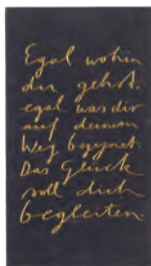 Egal wohin
du gehst,
egal was dir
auf deinem
Weg begegnet:
Das Glück
soll dich
begleiten.